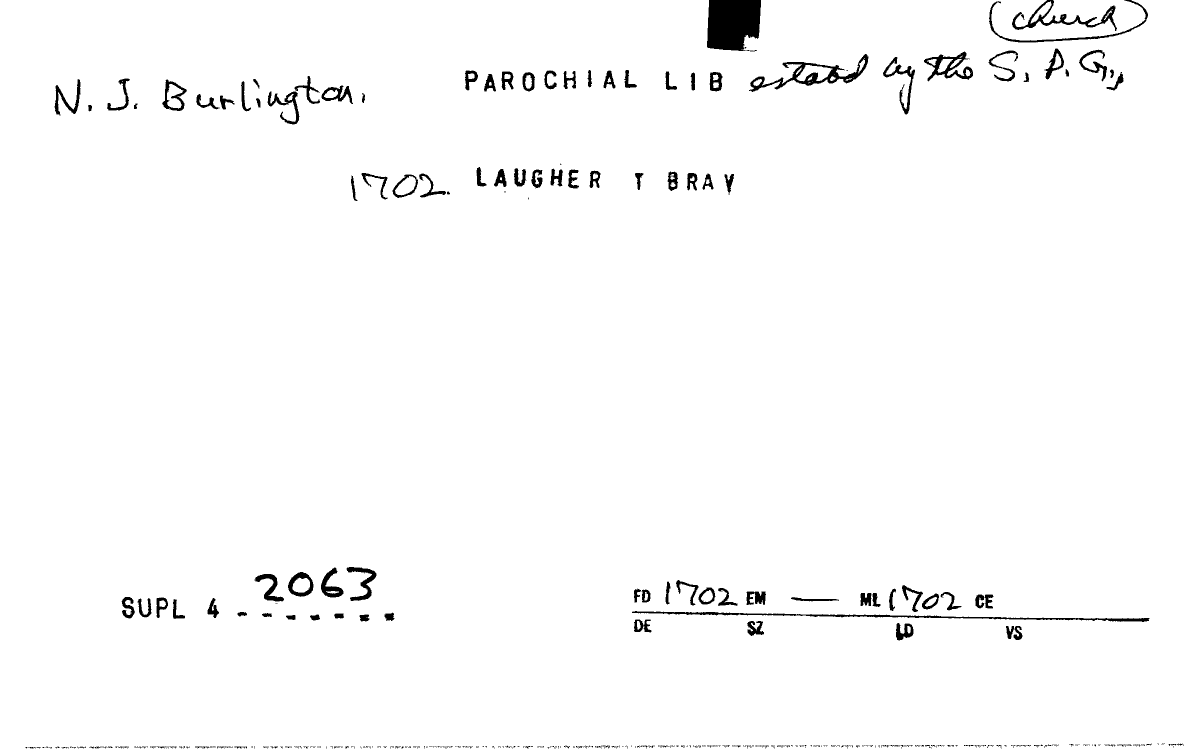 church
N. J. Burlington. PAROCHIAL LIB estabd by the S. P. G.,
1702. LAUGHER T BRAY
SUPL 4 2063
FD 1702 EM — ML 1702 CE
DE SZ LD VS